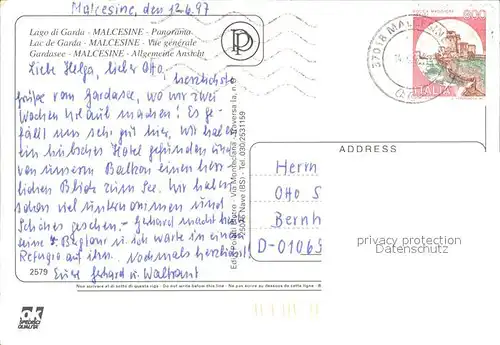 Malcesine, den 12.6.97
Lago di Garda - MALCESINE - Panorama
Lac de Garda - MALCESINE - Vue générale
Gardasee - MALCESINE - Allgemeine Ansicht
Liebe Helga, lieber Otto,
herzlichste
Grüße vom Gardasee, wo wir zwei
Wochen Urlaub machen! Es ge-
fällt uns sehr gut hier, wir haben
ein hübsches Hotel gefunden und
von unserm Balkon einen herr-
lichen Blick zum See. Wir haben
schon viel unternommen und
Schönes gesehen. - Gerhard macht heute
seine Bergtour u. ich warte in einem
Refugio auf ihn. Nochmals herzlichst
Eure Gerhard u. Waltraut
2579
Via Montecl
Traversa Ia, n.
25075 Nave (BS) - Tel. 030/2531159
ROCCA MAGGIORE
800
ITALIA
37018 MALC
ADDRESS
Herrn
Otto S
Bernh
D-01065
privacy protection
Datenschutz
Non scrivere al di sotto di questa riga - Do not write below this line - Ne pas écrire au dessous de cette ligne
OK
SPEDIBILI
QUALITÀ